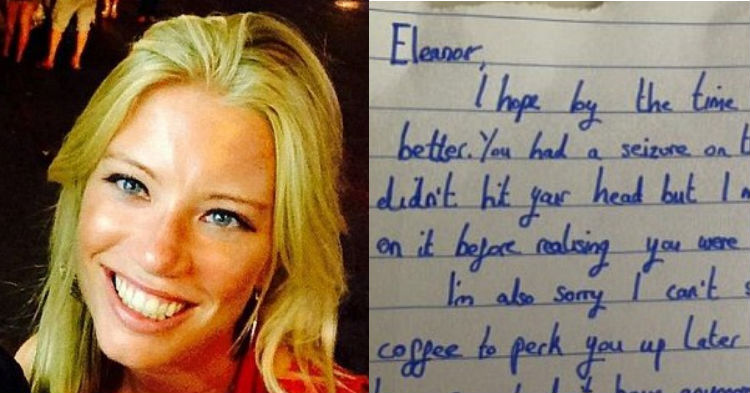 Eleanor,
I hope by the time
better. You had a seizure on
didn't hit your head but I
on it before realising you were
I'm also sorry I can't
coffee to perk you up later